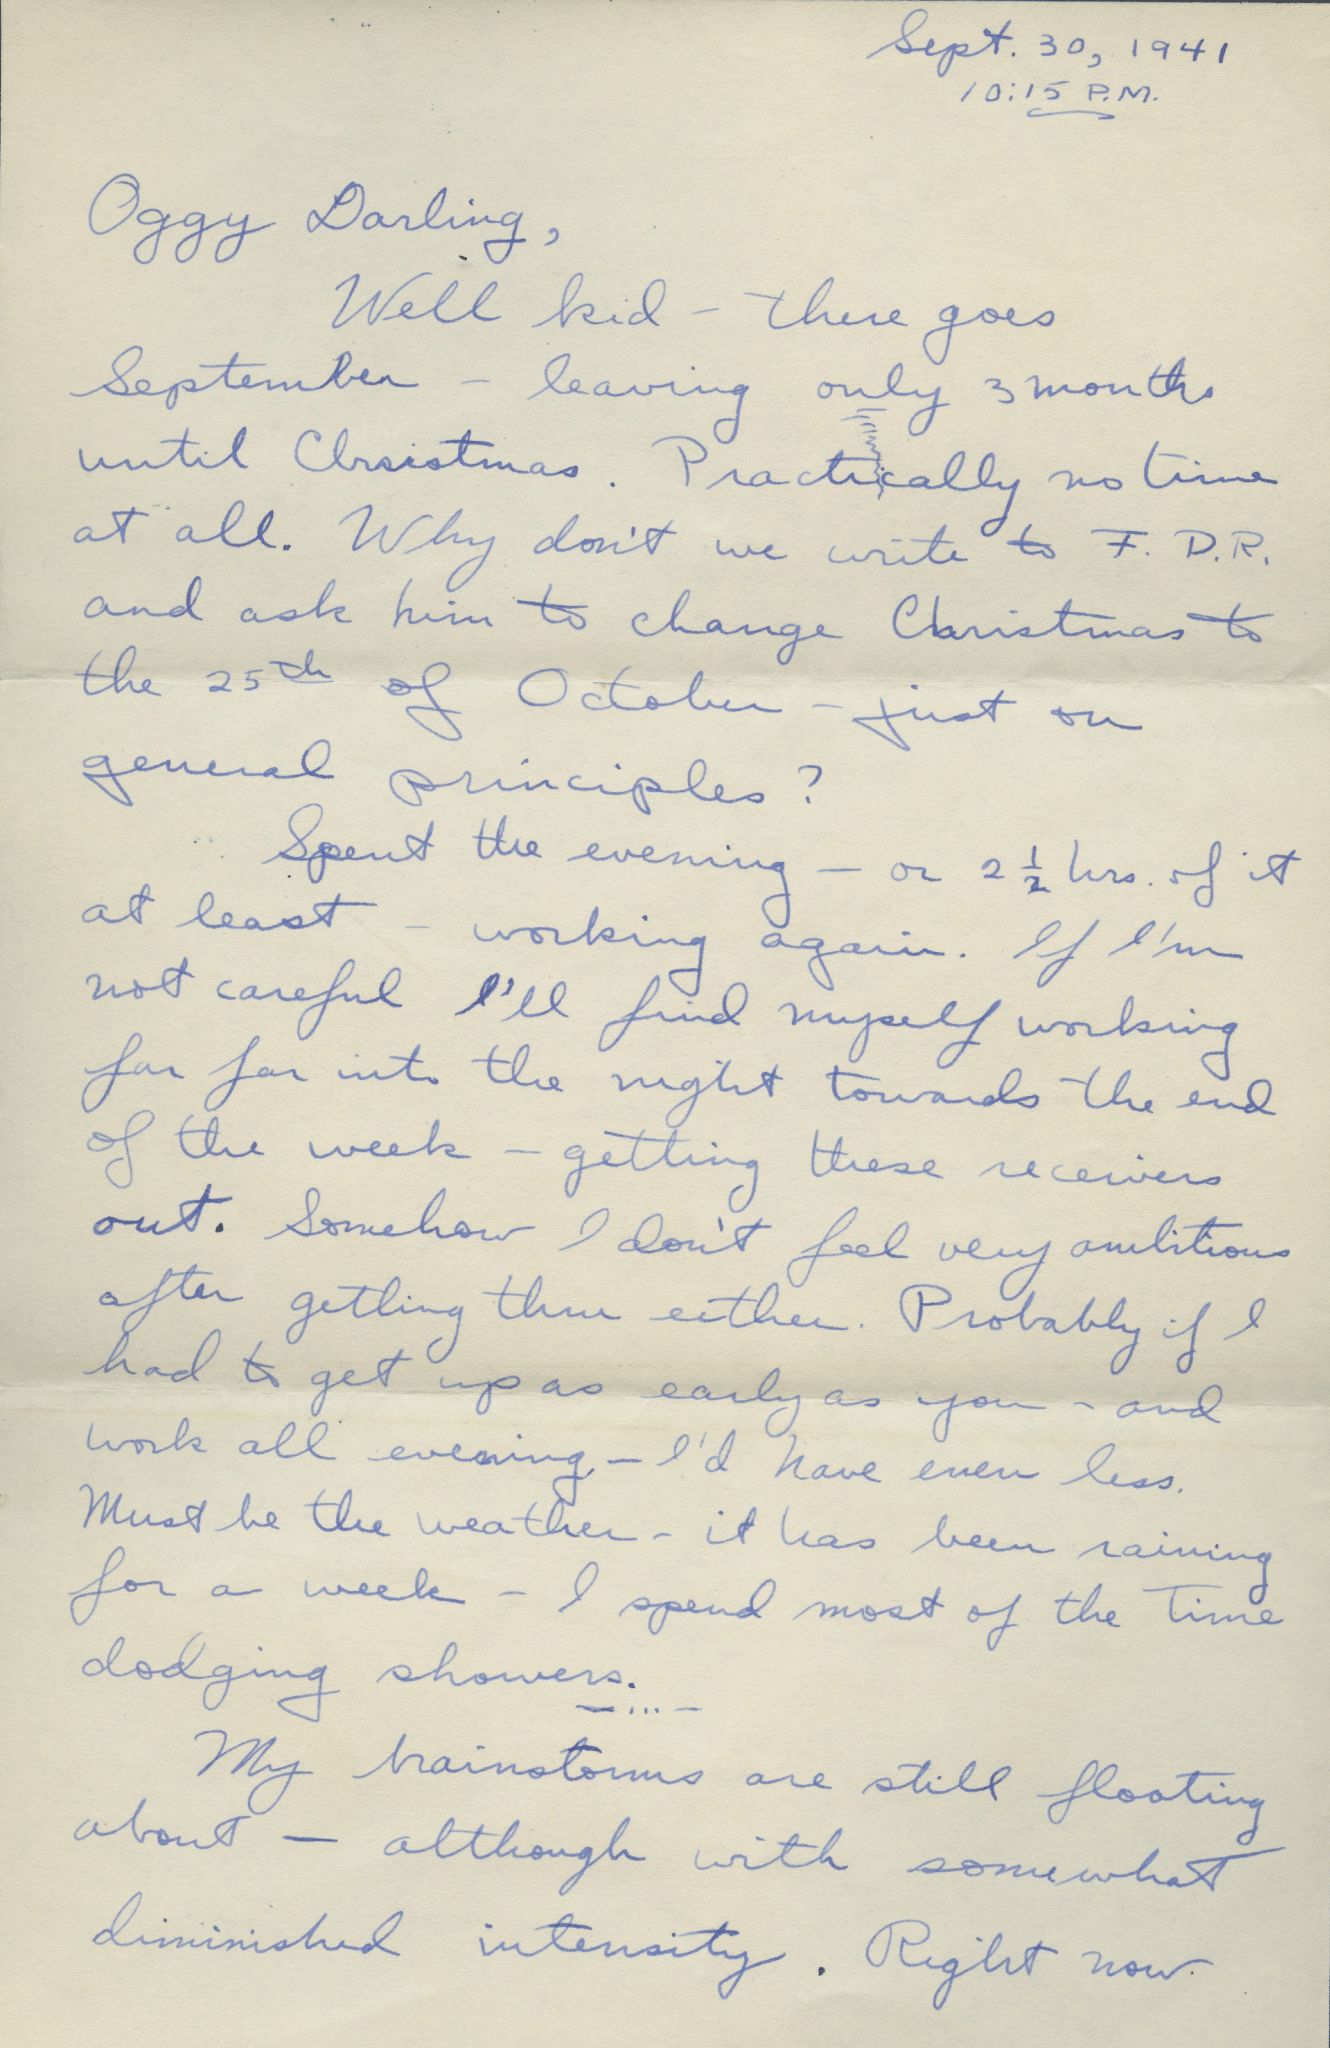 Sept. 30, 1941
10:15 P.M.
Oggy Darling,
Well kid - there goes
September - leaving only 3 months
until Christmas. Practically no time
at all. Why don't we write to F. D.R.
and ask him to change Christmas to
the 25th of October - just on
general principles?
Spent the evening - or 2 1/2 hrs. of it
at least - working again. If I'm
not careful I'll find myself working
far far into the night towards the end
of the week - getting these receivers
out. Somehow I don't feel very ambitious
after getting thru either. Probably if I
had to get up as early as you - and
work all evening, - I'd have even less.
Must be the weather - it has been raining
for a week - I spend most of the time
dodging showers.
— ... —
My brainstorms are still floating
about — although with somewhat
diminished intensity. Right now